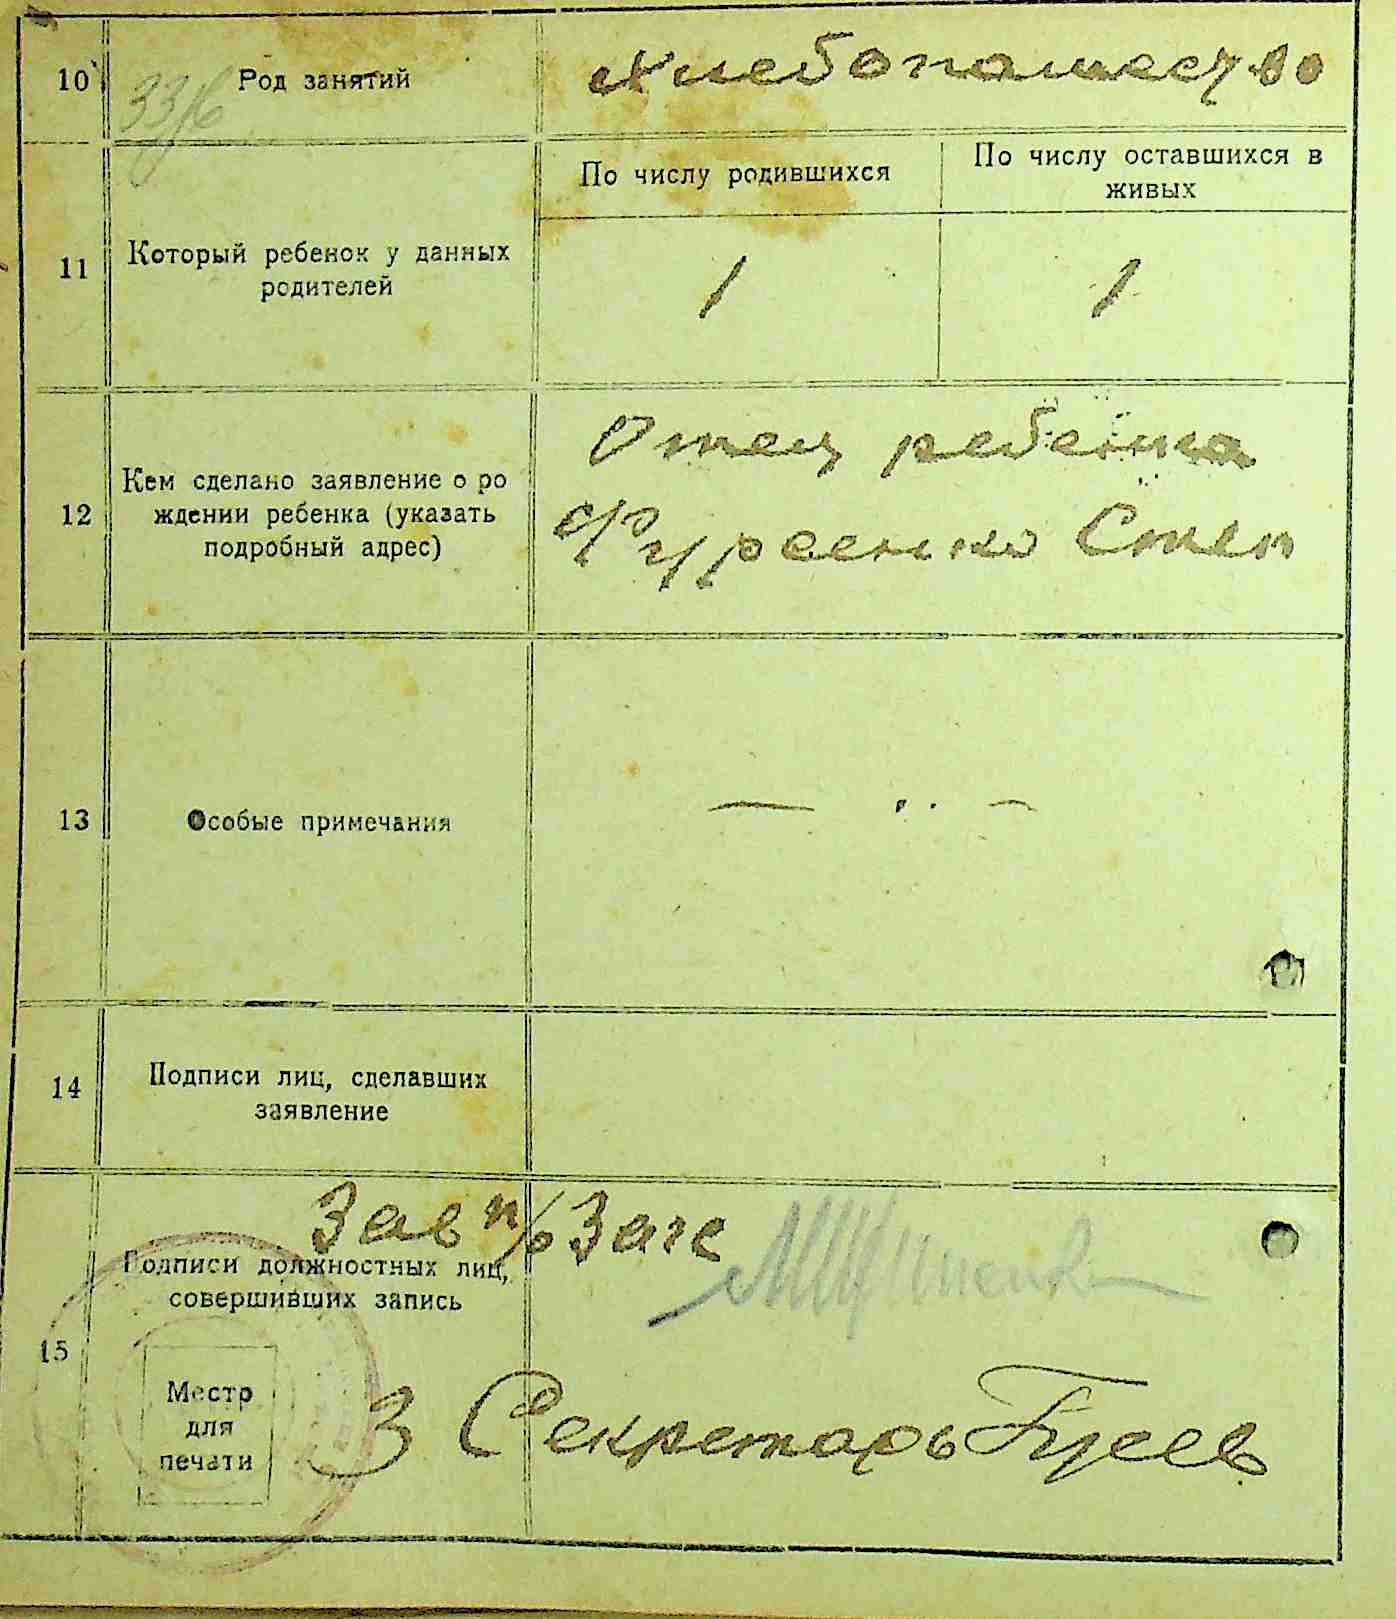 10 Род занятий хлебопашество
11 Который ребенок у данных
родителей
По числу родившихся
По числу оставшихся в
живых
1 1
12 Кем сделано заявление о ро
ждении ребенка (указать
подробный адрес)
Отец ребенка
Степ
13 Особые примечания — .. —
14 Подписи лиц, сделавших
заявление
Зав п/о Загс
15 Подписи должностных лиц,
совершивших запись
Место
для
печати
З Секретарь Гусев